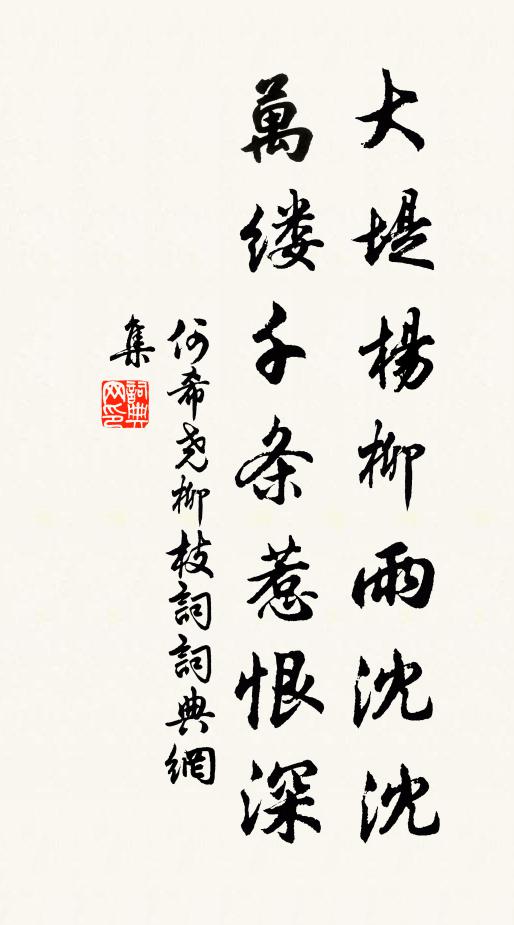 大堤楊柳雨沈沈
萬缕千条惹恨深
何希尧柳枝詞詞典網
集
詞典网印